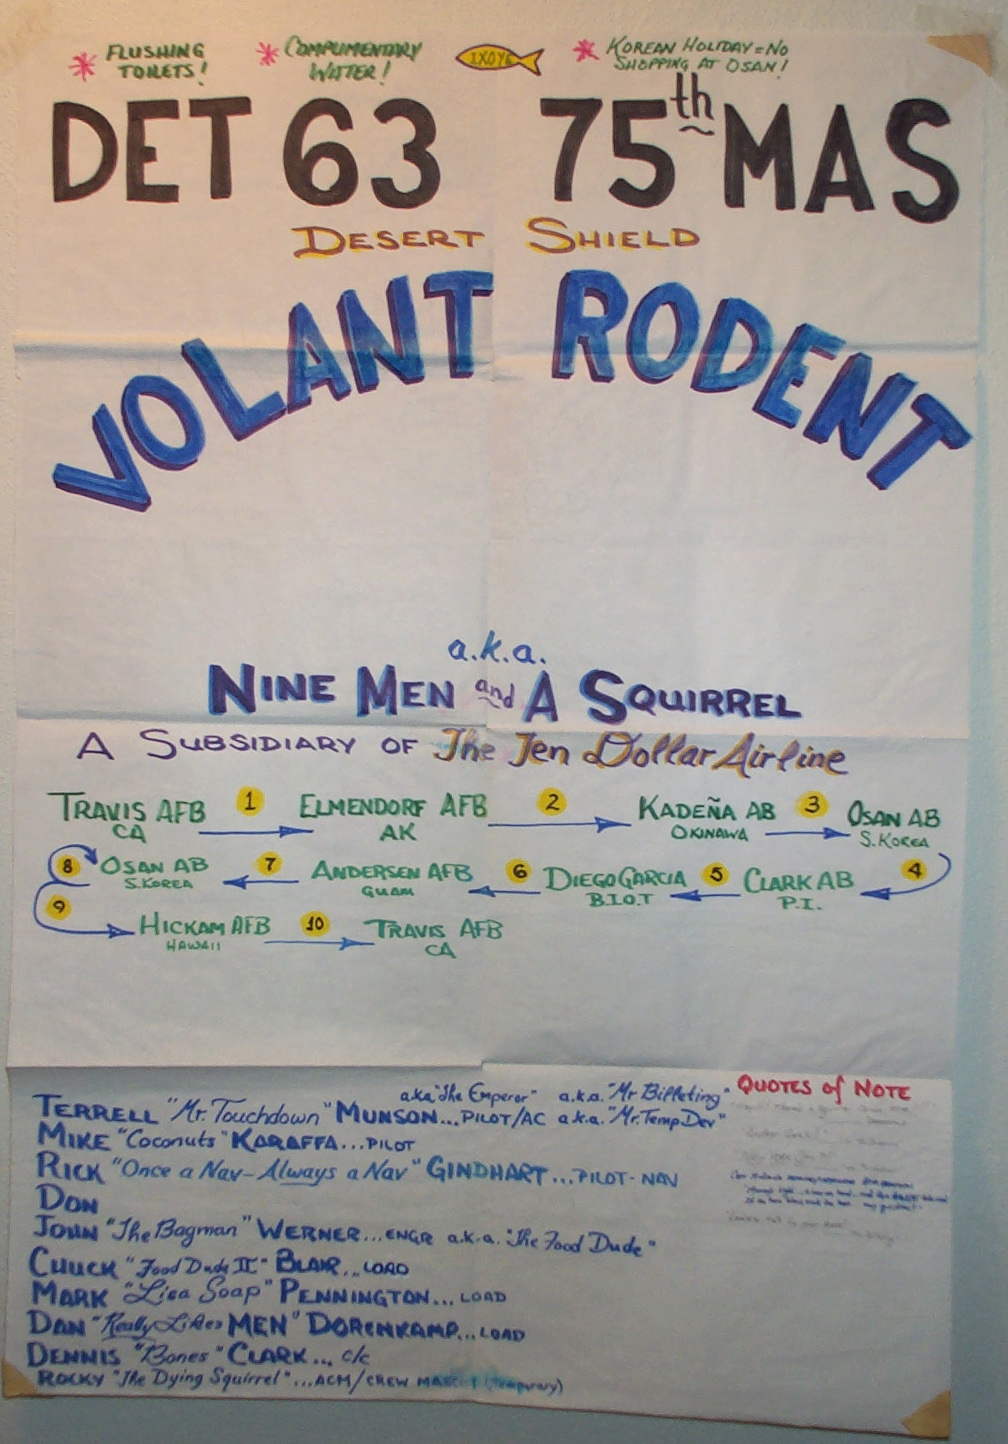 * FLUSHING TOILETS!
* COMPLIMENTARY WATER!
IXOYE
* KOREAN HOLIDAY = NO SHOPPING AT OSAN!
DET 63 75th MAS
DESERT SHIELD
VOLANT RODENT
a.k.a.
NINE MEN and A SQUIRREL
A SUBSIDIARY OF The Ten Dollar Airline
TRAVIS AFB CA 1 ELMENDORF AFB AK 2 KADEÑA AB OKINAWA 3 OSAN AB S. KOREA
4 CLARK AB P.I. 5 DIEGO GARCIA B.I.O.T 6 ANDERSEN AFB GUAM 7 OSAN AB S. KOREA 8
9 HICKAM AFB HAWAII 10 TRAVIS AFB CA
a.k.a "The Emperor" a.k.a. "Mr Billeting"
TERRELL "Mr. Touchdown" MUNSON... PILOT/AC a.k.a. "Mr. Temp Dev"
MIKE "Coconuts" KARAFFA... PILOT
RICK "Once a Nav - Always a Nav" GINDHART... PILOT-NAV
DON
JOHN "The Bagman" WERNER... ENGR a.k.a. "The Food Dude"
CHUCK "Food Dude II" BLAIR... LOAD
MARK "Lisa Soap" PENNINGTON... LOAD
DAN "Really Likes MEN" DORENKAMP... LOAD
DENNIS "Bones" CLARK... c/c
ROCKY "The Dying Squirrel"... ACM/CREW (temporary)
QUOTES of NOTE